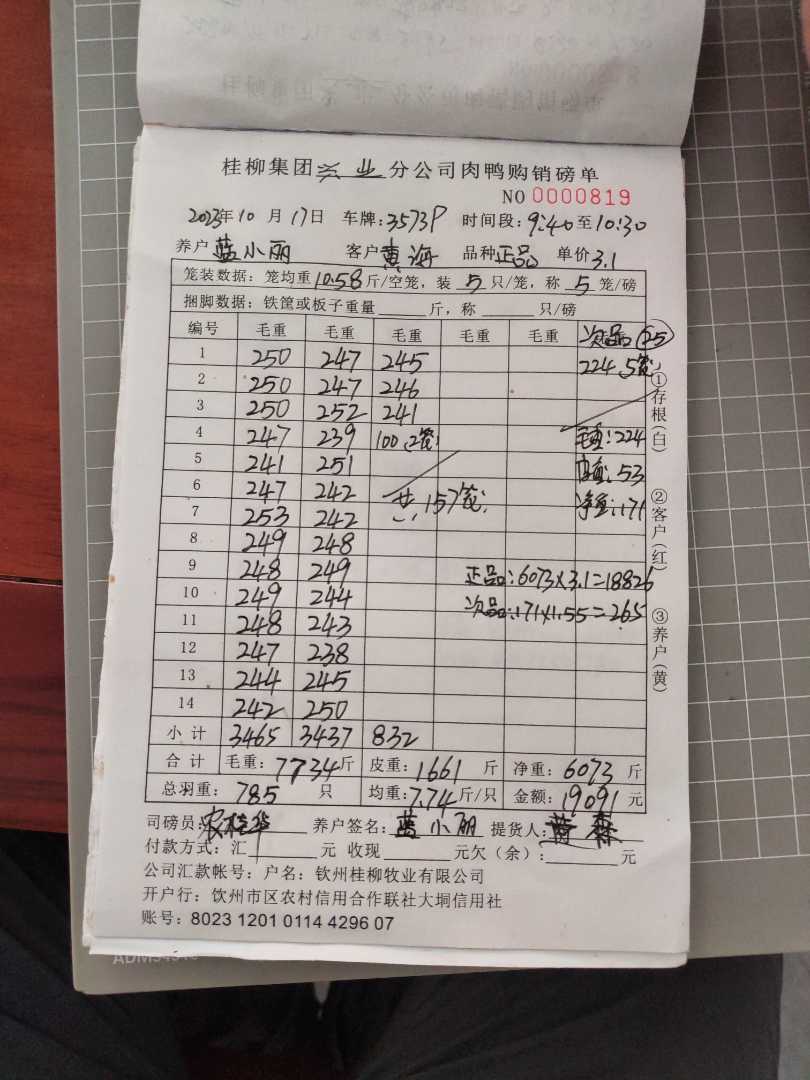 桂柳集团兴业分公司肉鸭购销磅单
NO 0000819
2023年10月17日 车牌:3573P 时间段:9:40至10:30
养户蓝小丽 客户黄海 品种正品 单价3.1
笼装数据:笼均重10.58斤/空笼,装5只/笼,称5笼/磅
捆脚数据:铁筐或板子重量____斤,称____只/磅
编号 毛重 毛重 毛重 毛重 毛重 次品
1 250 247 245 224 5笼
2 250 247 246
3 250 252 241
4 247 239 100 2笼 毛重:224
5 241 251 皮重:53
6 247 242 共157笼
7 253 242 净重:171
8 249 248
9 248 249 正品:6073×3.1=18826
10 249 244 次品:171×1.55=265
11 248 243
12 247 238
13 244 245
14 242 250
小计 3465 3437 832
合计 毛重:7734斤 皮重:1661斤 净重:6073斤
总羽重:785只 均重:7.74斤/只 金额:19091元
司磅员:农桂华 养户签名:蓝小丽 提货人:黄森
付款方式:汇____元 收现____元欠(余):____元
公司汇款帐号:户名:钦州桂柳牧业有限公司
开户行:钦州市区农村信用合作联社大垌信用社
账号:8023 1201 0114 4296 07
①存根(白) ②客户(红) ③养户(黄)